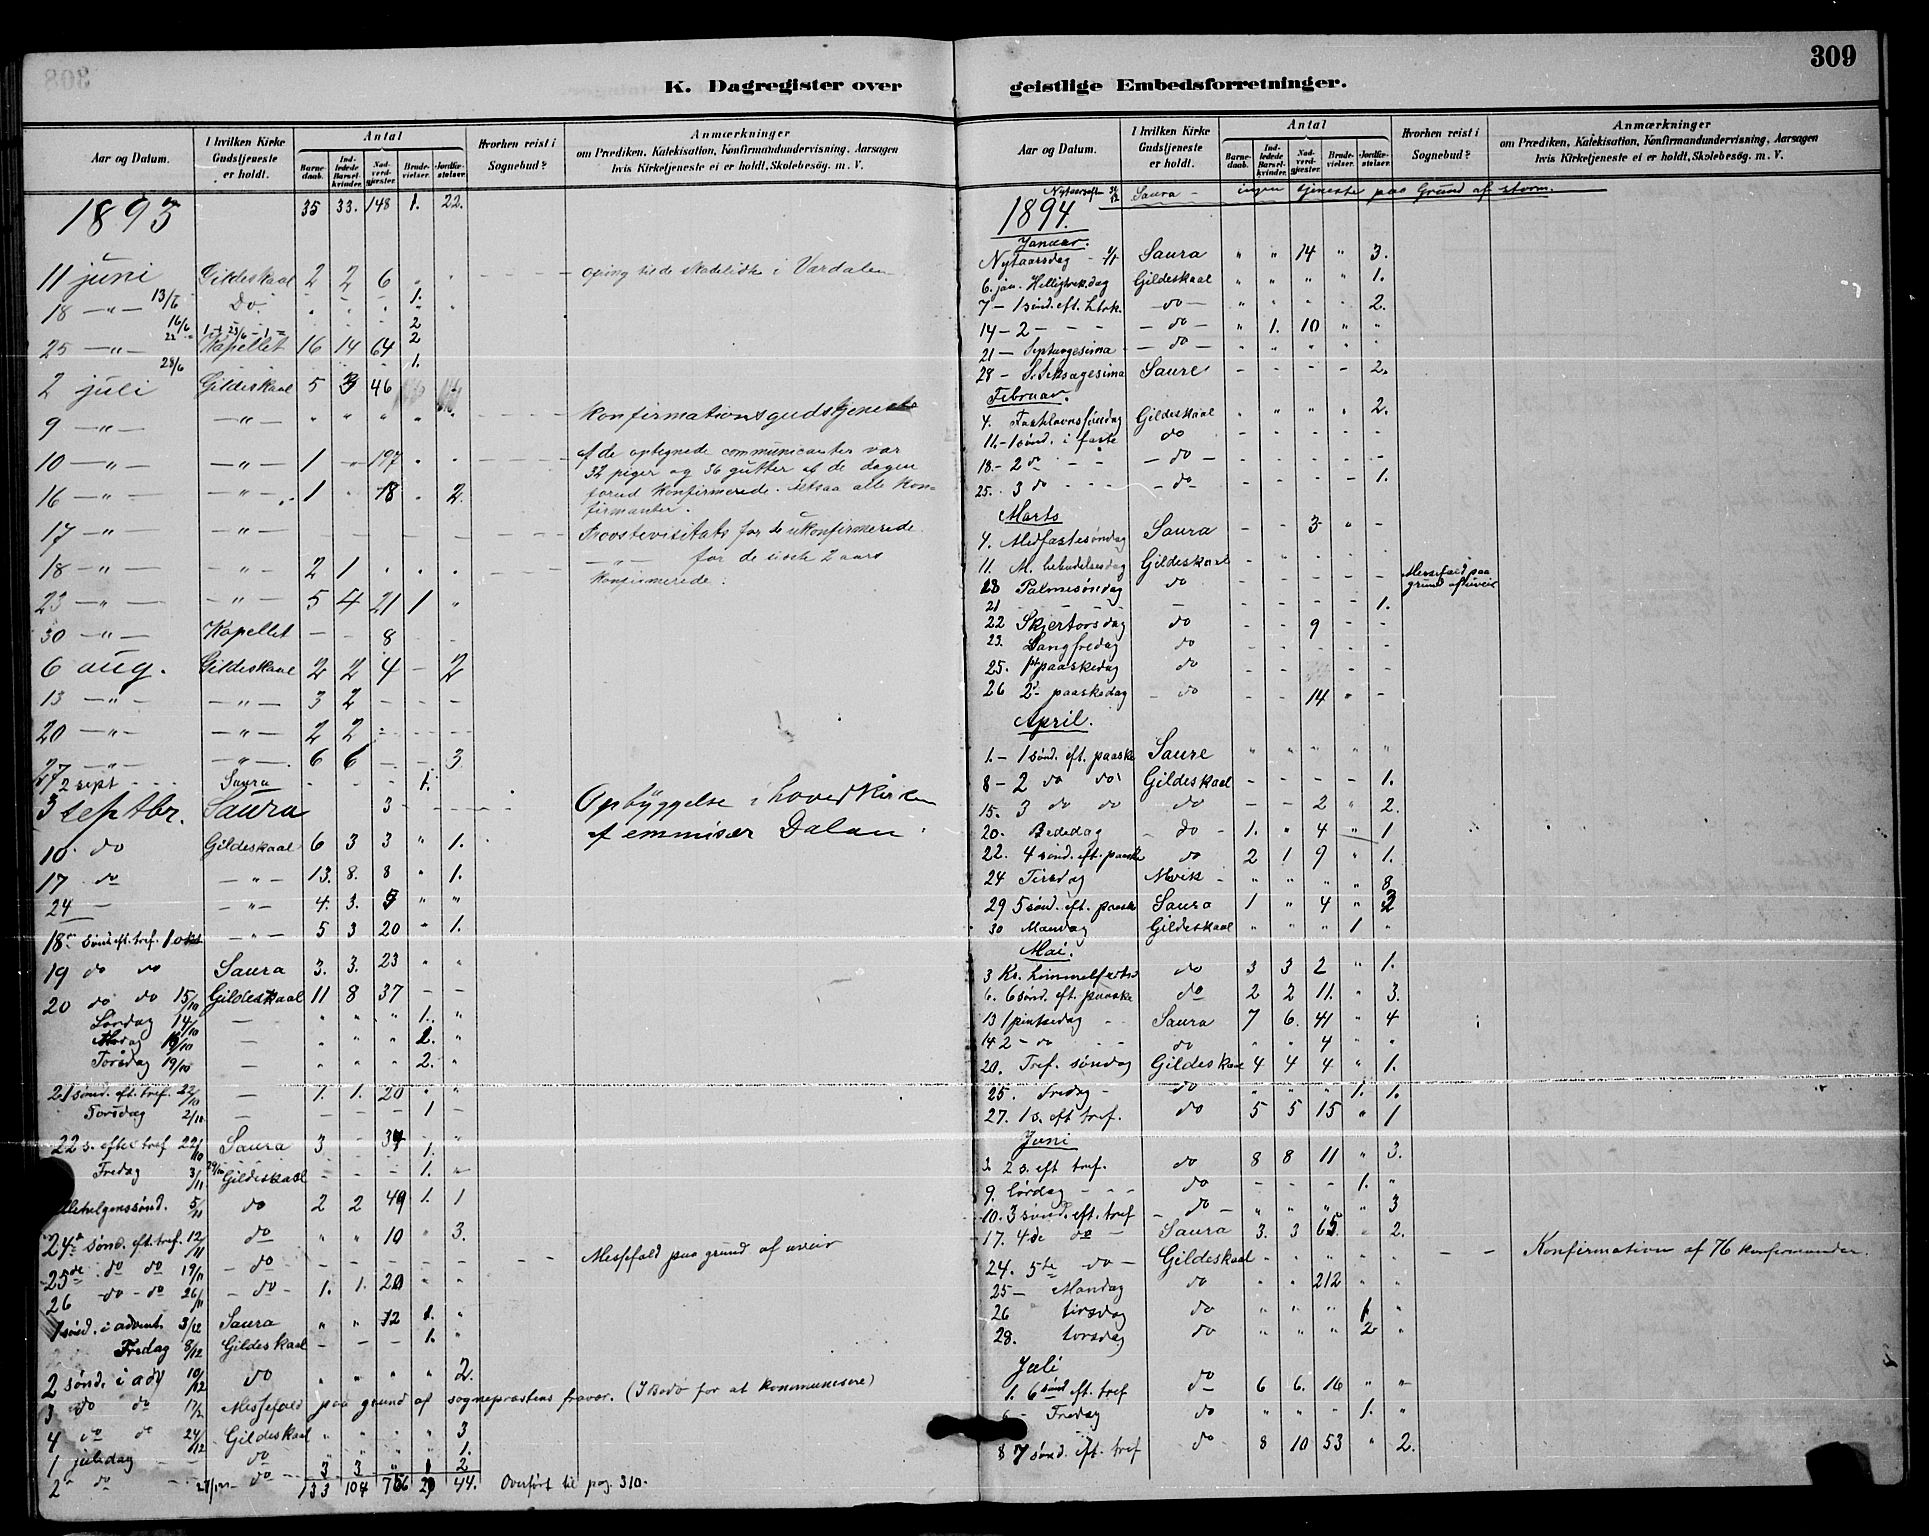 309
K. Dagregister over
geistlige Embedsforretninger.
Aar og Datum. I hvilken Kirke Gudstjeneste er holdt. Antal Barnedaab. Indledede Barselkvinder. Nadverdgjæster. Brudevielser. Jordfæstelser. Hvorhen reist i Sognebud? Anmærkninger om Prædiken, Katekisation, Konfirmandundervisning, Aarsagen hvis Kirketjeneste ei er holdt, Skolebesøg. m. V.
1893 35 33. 148 1. 22.
11 juni Gildeskaal 2 2 6 " "
13/6 1.
18 — " — Do. " " " " "
16/6 2
22
25 — " — Kapellet 16 14 64 2
28/6 1.
2 juli Gildeskaal 5 3 46
9 — " — — " — " " " " " Konfirmationsgudstjeneste
10 — " — — " — 1 " 197 " " af de optegnede communicanter var
32 piger og 36 gutter af de dagen
16 — " — — " — 1 " 18 " 2. forud konfirmerede. altsaa alle kon-
firmanter.
17 — " — — " — Provstevisitats for de ukonfirmerede
— " — for de siste 2 aars
18 — " — — " — 2 1 " " " konfirmerede.
23 — " — — " — 5 4 21 1 "
30 — " — Kapellet — — 8 —
6 aug. Gildeskaal 2 2 4 — 2
13 — " — — " — 3 2 — — —
20 — " — — " — 2 2 — — —
27 — " — — " — 6 6 — — 3
2 sept Saura — — — 1.
3 septbr. Saura 3 — — Opbyggelse i hovedkirken
af emmisær Dalan.
10. do Gildeskaal 6 3 3 " 1.
17 do — " — 13. 8. 8 " 1.
24 — — " — 4. 3. 5 " "
18de sønd. eft. tref. 1. okt — " — 5 3 20 " 1.
19 do do Saura 3. 3. 23 " "
20 do do 15/10 Gildeskaal 11 8 37 — —
Lørdag 14/10 — " " " 1. "
— " " " 2. "
Torsdag 19/10 — " " " 2. "
21 sønd. eft. tref. 22/10 — 1. 1. 20 " "
Torsdag 2/10 — — — 1 —
22 s. efter tref 22/10 Saura 3 — 1. "
Fredag 3/11 Gildeskaal — — — 1. "
Allehelgenssønd. 5/11 do 2 2 49 1. 1
24de sønd. eft. tref. 12/11 do " " 10 " 3.
25de do do 19/11 do — — — — — Messefald paa grund af uveir
26 do do 26/11 do 1. 1. 20 " "
1 sønd. i advent. 3/12 Saura " " 12 1. "
Fredag 8/12 Gildeskaal — — — 1. "
2 sønd. i adv 10/12 do " " " " 2.
3 do do 17/12 Messefald paa grund af sogneprestens fravær. (I Bodø for at kommunisere)
4 do do 24/12 Gildeskaal " " " " 3
1 juledag do " " " " 1.
2 do do 3 3 " 1 2
133 104 44. Overført til pag. 310.
Aar og Datum. I hvilken Kirke Gudstjeneste er holdt. Antal Barnedaab. Indledede Barselkvinder. Nadverdgjæster. Brudevielser. Jordfæstelser. Hvorhen reist i Sognebud? Anmærkninger om Prædiken, Katekisation, Konfirmandundervisning, Aarsagen hvis Kirketjeneste ei er holdt, Skolebesøg. m. V.
Nytaarsaften 31/12 Saura — ingen tjeneste paa Grund af storm.
1894.
Januar.
Nytaarsdag 1/1 Saura " " 14 " 3.
6. jan. Helligtrek.dag Gildeskaal " " " " 1.
7 — 1 sønd. eft. h.trk. — do — " " " " 2.
14 — 2 — — — do — " 1. 10 " "
21 — Septuagesima — do " " " " "
28 — S. Seksagesima Saure — — — — 2.
Februar.
4. Fastelavnssøndag Gildeskaal " " " " 2.
11. — 1 sønd. i faste do — — — — —
18. — 2 do — — — do — — — — — —
25. 3 do — — — do — — — — 1.
Marts
4. Midfastesøndag Saura — — 3 " —
11. M. bebudelsesdag Gildeskaal — " " " "
18 Palmesøndag do — — — — — Messefald paa grund af uveir
21 — — — — 1.
22 Skjertorsdag do — — 9 — —
23. Langfredag do — — — — —
25. 1ste paaskedag do — — — —
26 2den paaskedag — do — — 14 " —
April.
1. — 1 sønd. eft. paaske Saure " " " " "
8 — 2 do do Gildeskaal — — — — 1.
15. 3 do do do — — 2 " 2.
20. Bededag — do — 1. " 4 " 1
22. 4 sønd. eft. paaske do 2 1 9 " 1.
24 Tirsdag Mevik — " " " " 8
29 5 sønd. eft. paaske Saura 1 " 4 "
30 Mandag Gildeskaal " " " 1 "
Mai.
3 Kr. himmelfartsd do 3 3 2 " 1.
6. 6 sønd. eft. paaske do 2 2 11. " 3.
13 1 pintsedag Saura 7 6. 41 " 4
14 2 — do — do " " 4 " "
20. Tref. søndag Gildeskaal 4 4 4 " 1.
25. Fredag — do " " " 1. 1.
27. 1 s. eft tref. do 5 5 15 " 1
Juni
3. 2 s. eft tref. do 8 8 11 " 3.
9. Lørdag — — do — — — 1. "
10. 3 sønd. eft. tref — do — " " " " 3
17. 4de do — Saura 3. 3 65 " 2.
24. 5te do — Gildeskaal — — Konfirmation af 76 konfirmander
25 — Mandag do " " 212 " "
26 tirsdag do " " " 1 "
28. torsdag do " " " 2 "
Juli
1. 6 sønd eft. tref do 6 6. 16 " "
6 — Fredag do " " " 1. "
8 7 sønd. eft. tref do 8 10 53 " 2.